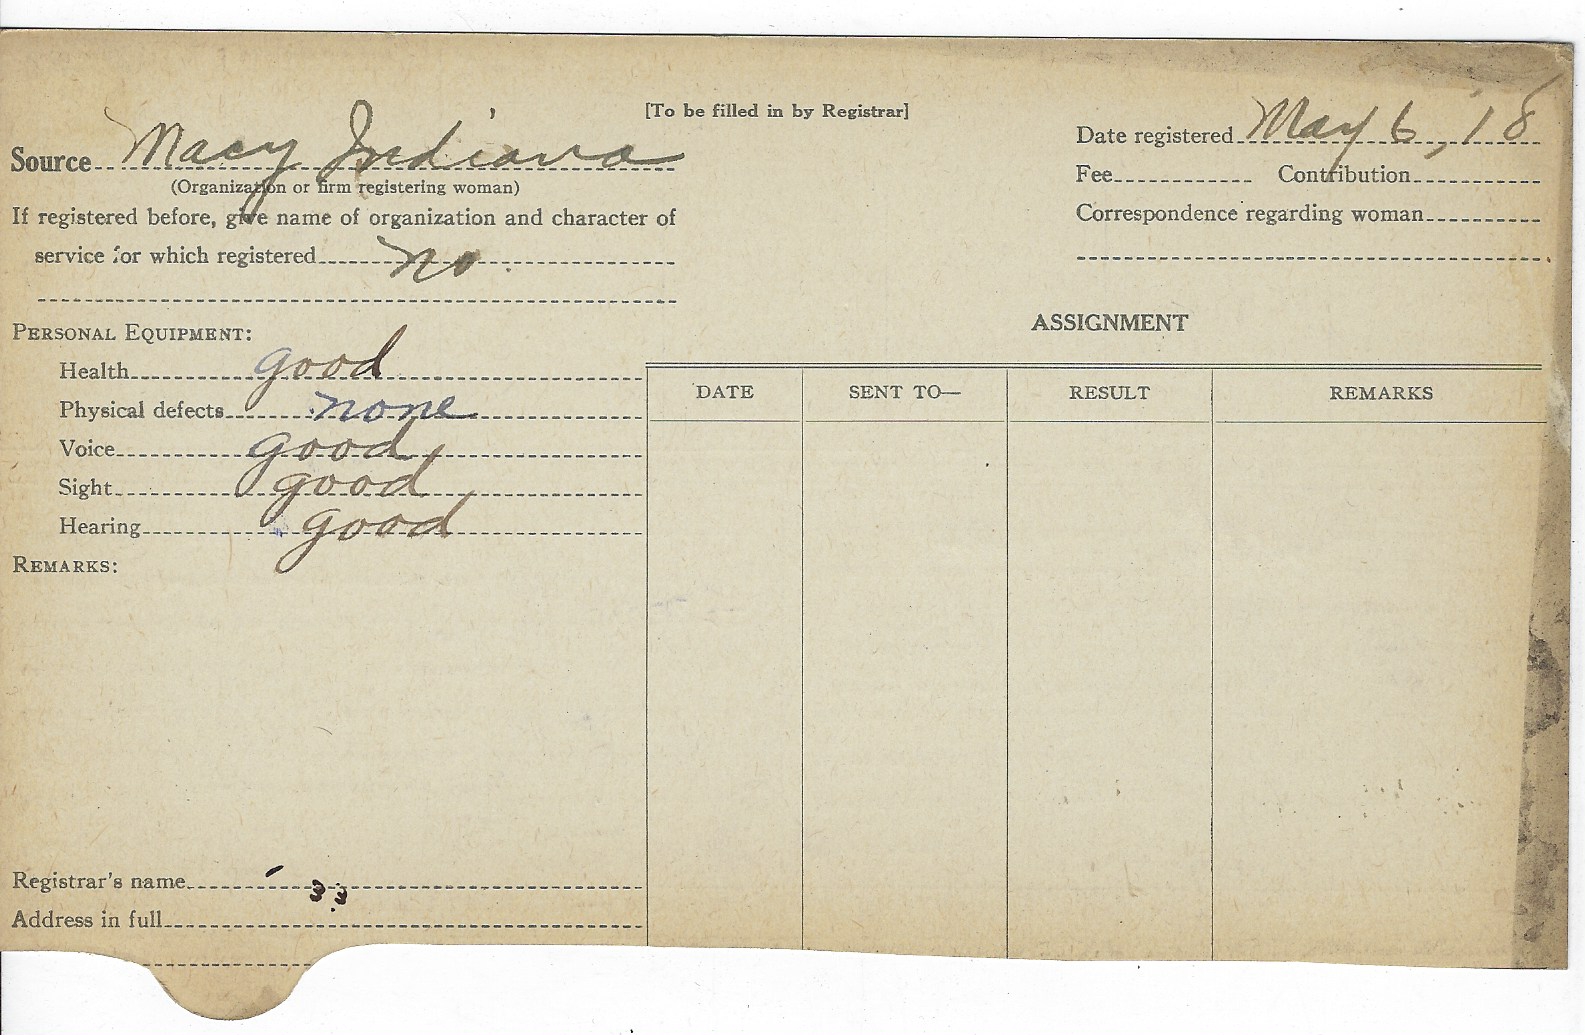 [To be filled in by Registrar]
Source Macy Indiana
(Organization or firm registering woman)
If registered before, give name of organization and character of
service for which registered no.
Date registered May 6, '18
Fee Contribution
Correspondence regarding woman
PERSONAL EQUIPMENT:
Health good
Physical defects none
Voice good
Sight good
Hearing good
REMARKS:
Registrar's name
Address in full
ASSIGNMENT
DATE SENT TO— RESULT REMARKS